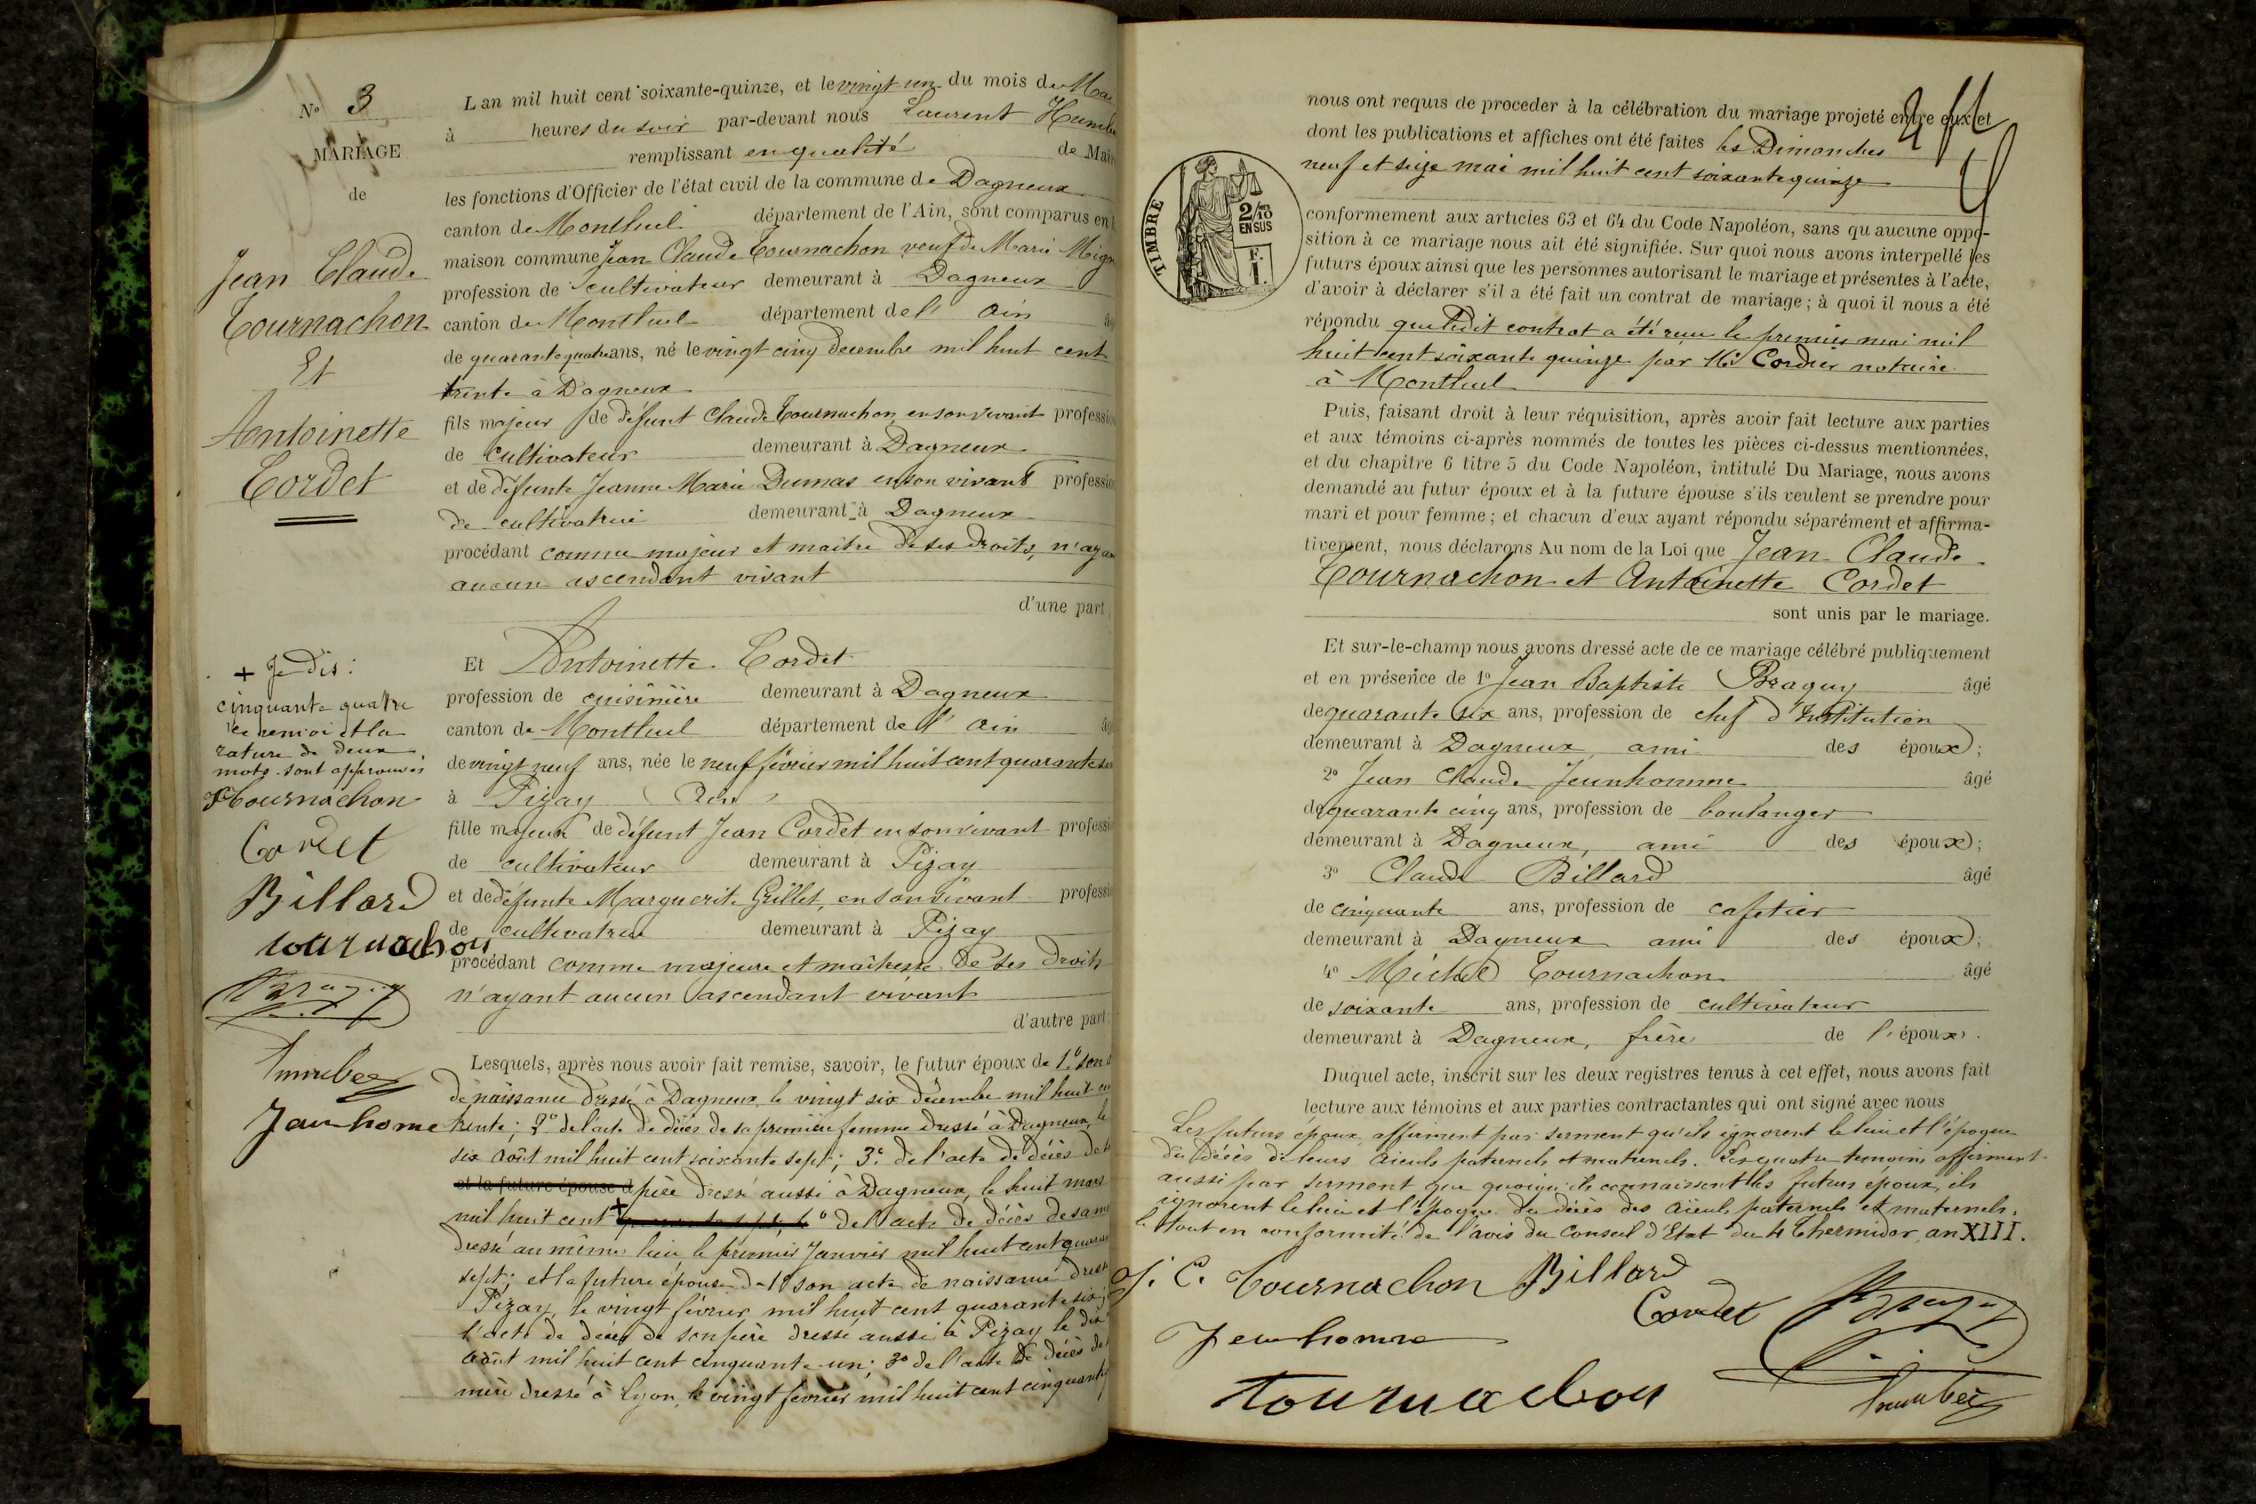 No 3
MARIAGE
de
Jean Claude
Tournachon
Et
Antoinette
Cordet
+ Je dis :
cinquante quatre
ce renvoi et la
rature de deux
mots sont approuvés
Tournachon
Cordet
Billard
tournachon
Braguy
humbert
Jeunhome
L an mil huit cent soixante-quinze, et le vingt un du mois de Mai
à heures du soir par-devant nous Laurent Humbe
remplissant en qualité de Mair
les fonctions d'Officier de l'état civil de la commune de Dagneux
canton de Montluel département de l'Ain, sont comparus en l
maison commune Jean Claude Tournachon veuf de Marie Mign
profession de cultivateur demeurant à Dagneux
canton de Montluel département de l' Ain âg
de quarante quatre ans, né le vingt cinq décembre mil huit cent
trente à Dagneux
fils majeur de défunt Claude Tournachon en son vivant profession
de cultivateur demeurant à Dagneux
et de défunte Jeanne Marie Dumas en son vivant profession
de cultivatrice demeurant à Dagneux
procédant comme majeur et maitre de ses droits, n'ayan
aucun ascendant vivant
d'une part,
Et Antoinette Cordet
profession de cuisinière demeurant à Dagneux
canton de Montluel département de l' ain âg
de vingt neuf ans, née le neuf février mil huit cent quarante six
à Pizay (Ain)
fille majeure de défunt Jean Cordet en son vivant professi
de cultivateur demeurant à Pizay
et de défunte Marguerite Grillet, en son vivant professi
de cultivatrice demeurant à Pizay
procédant comme majeure et maîtresse de ses droits
n'ayant aucun ascendant vivant
d'autre part
Lesquels, après nous avoir fait remise, savoir, le futur époux de 1° son a
de naissance dressé à Dagneux le vingt six décembre mil huit cen
trente; 2° de l'acte de décès de sa première femme dressé à Dagneux, le
six août mil huit cent soixante sept; 3° de l'acte de décès de s
et la future épouse d père dressé aussi à Dagneux, le huit mars
mil huit cent + ° de l'acte de décès de sa mè
dressé au même lieu le premier Janvier mil huit cent quaran
sept; et la future épouse de 1° son acte de naissance dressé
Pizay le vingt février mil huit cent quarante six;
l'acte de décès de son père dressé aussi à Pizay le dix
août mil huit cent cinquante un; 3° de l'acte de décès de
mère dressé à Lyon, le vingt février mil huit cent cinquante
nous ont requis de proceder à la célébration du mariage projeté entre eux et
dont les publications et affiches ont été faites les Dimanches
neuf et seize mai mil huit cent soixante quinze
TIMBRE
2/10
EN SUS
F.
1.
conformement aux articles 63 et 64 du Code Napoléon, sans qu aucune oppo-
sition à ce mariage nous ait été signifiée. Sur quoi nous avons interpellé les
futurs époux ainsi que les personnes autorisant le mariage et présentes à l'acte,
d'avoir à déclarer s'il a été fait un contrat de mariage ; à quoi il nous a été
répondu que ledit contrat a été reçu le premier mai mil
huit cent soixante quinze par Me Cordier notaire
à Montluel
Puis, faisant droit à leur réquisition, après avoir fait lecture aux parties
et aux témoins ci-après nommés de toutes les pièces ci-dessus mentionnées,
et du chapitre 6 titre 5 du Code Napoléon, intitulé Du Mariage, nous avons
demandé au futur époux et à la future épouse s'ils veulent se prendre pour
mari et pour femme ; et chacun d'eux ayant répondu séparément et affirma-
tivement, nous déclarons Au nom de la Loi que Jean Claude
Tournachon et Antoinette Cordet
sont unis par le mariage.
Et sur-le-champ nous avons dressé acte de ce mariage célébré publiquement
et en présence de 1° Jean Baptiste Braguy âgé
de quarante six ans, profession de chef d'Institution
demeurant à Dagneux, ami des époux ;
2° Jean Claude Jeunhomme âgé
de quarante cinq ans, profession de boulanger
demeurant à Dagneux, ami des époux ;
3° Claude Billard âgé
de cinquante ans, profession de cafetier
demeurant à Dagneux ami des époux ;
4° Michel Tournachon âgé
de soixante ans, profession de cultivateur
demeurant à Dagneux, frère de l'époux .
Duquel acte, inscrit sur les deux registres tenus à cet effet, nous avons fait
lecture aux témoins et aux parties contractantes qui ont signé avec nous
Les futurs époux affirment par serment qu'ils ignorent le lieu et l'époque
du décès de leurs aïeuls paternels et maternels. Les quatre temoins affirment
aussi par serment que quoiqu'ils connaissent les futurs époux, ils
ignorent le lieu et l'époque du décès des aïeuls paternels et maternels.
le tout en conformité de l'avis du Conseil d'Etat du 4 Thermidor, an XIII.
J. C. Tournachon Billard
Cordet Braguy
Jeunhomme
tournachon
humbert